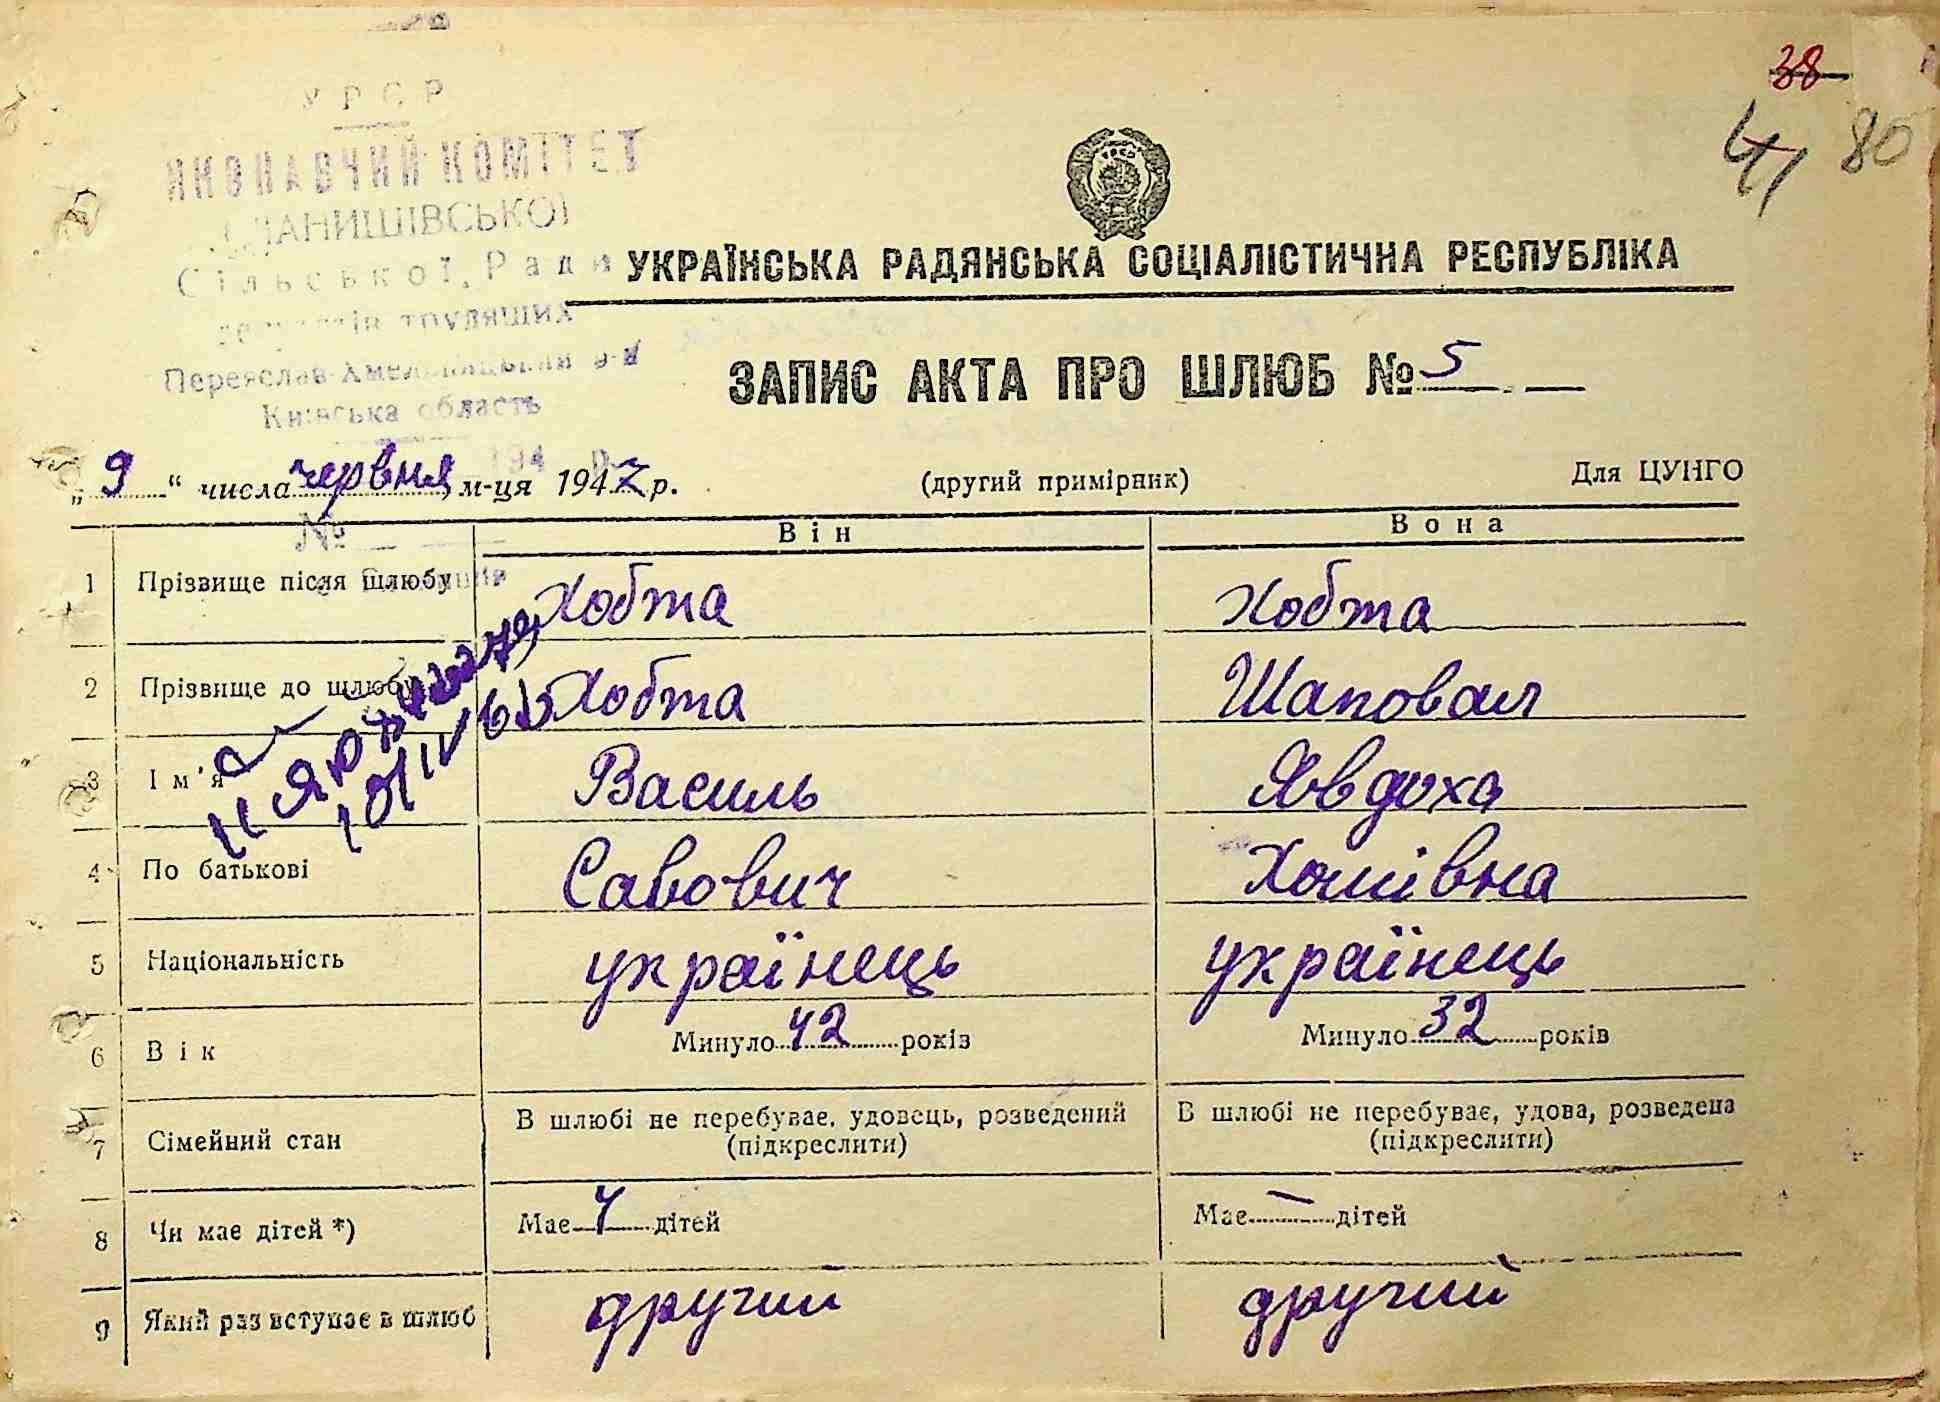 38
41 80
УРСР
ИКОНАВЧИЙ КОМІТЕТ
Сільської Ради
депутатів трудящих
Переяслав-Хмельницький р-н
Київська область
194 р.
№
УКРАЇНСЬКА РАДЯНСЬКА СОЦІАЛІСТИЧНА РЕСПУБЛІКА
ЗАПИС АКТА ПРО ШЛЮБ № 5
„ 9 “ числа червня м-ця 1947 р. (другий примірник) Для ЦУНГО
Він Вона
1 Прізвище після шлюбу Хобта Хобта
2 Прізвище до шлюбу Хобта Шаповал
3 Ім'я Василь Явдоха
4 По батькові Савович Хомівна
5 Національність українець українець
6 Вік Минуло 42 років Минуло 32 років
7 Сімейний стан В шлюбі не перебуває, удовець, розведений (підкреслити) В шлюбі не перебуває, удова, розведена (підкреслити)
8 Чи має дітей *) Має 4 дітей Має — дітей
9 Який раз вступає в шлюб другий другий